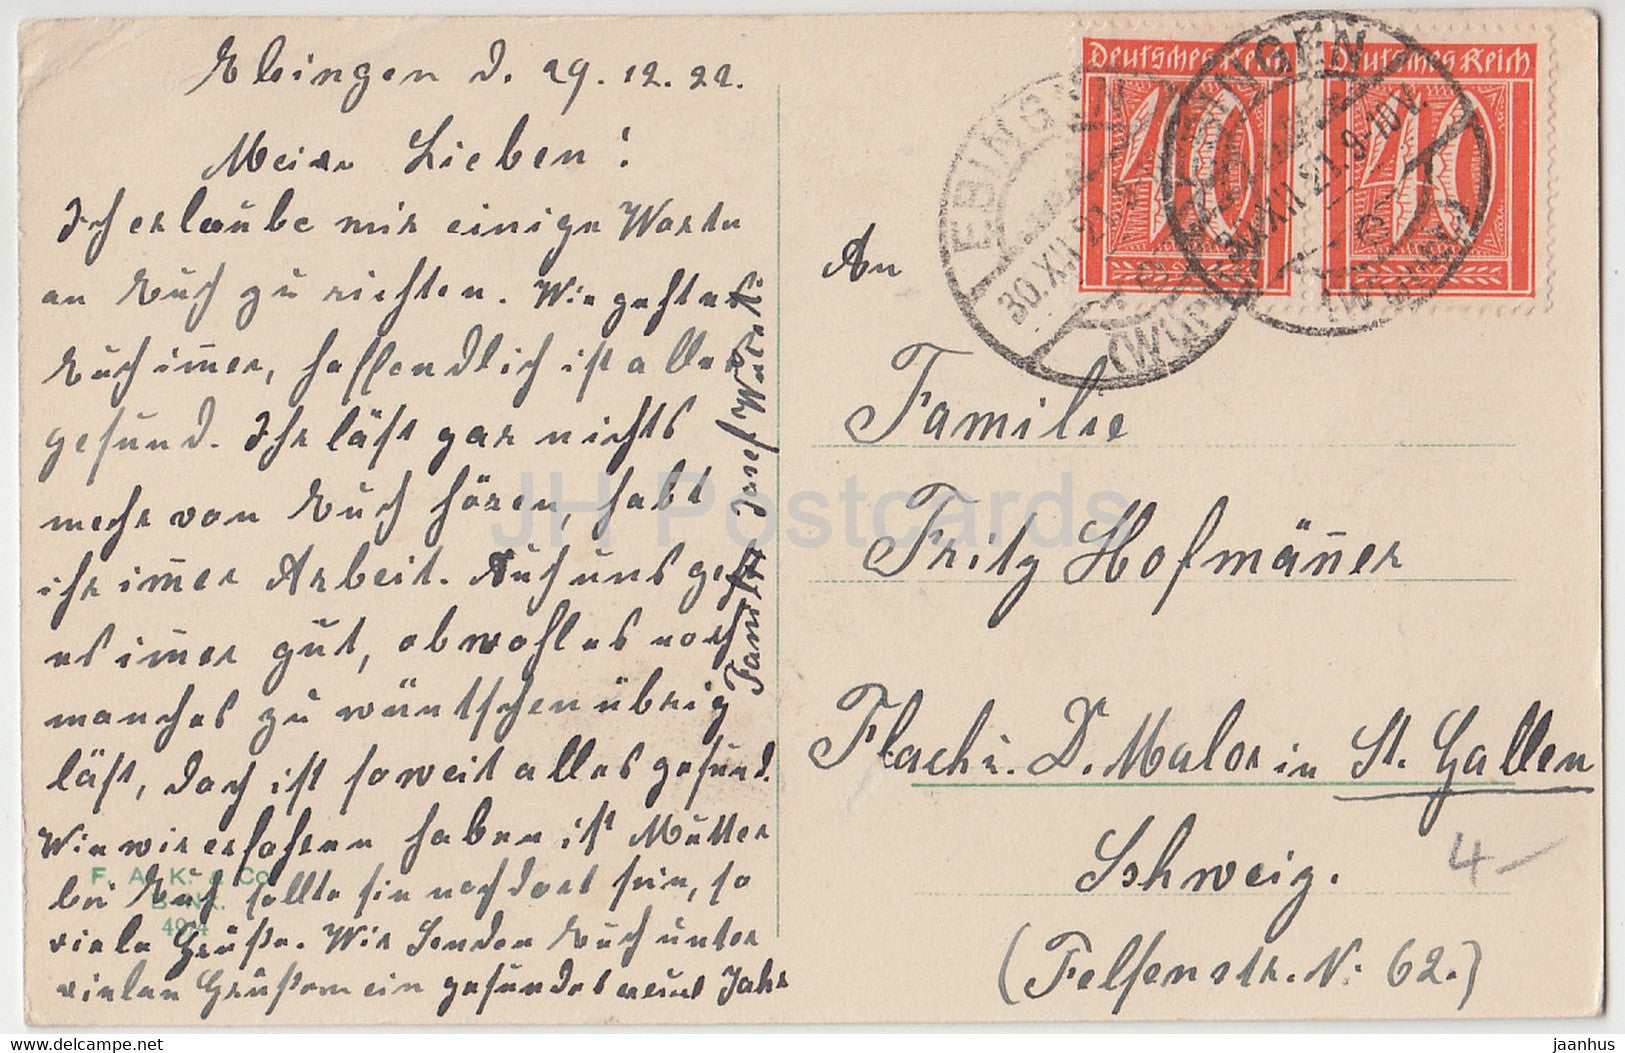 Ebingen d. 29.12.22.
Meine Lieben!
Ich erlaube mir einige Worte
an Euch zu richten. Wie geht es
Euch immer, hoffendlich ist alles
gesund. Ihr läst gar nichts
mehr von Euch hören, habt
ihr immer Arbeit. Auch uns geht
es immer gut, obwohl es noch
manches zu wüntschen übrig
läst, doch ist soweit alles gesund.
Wie wir erfahren haben ist Mutter
bei Euch sollte sie noch dort sein, so
viele Grüße. Wir Senden Euch unter
vielen Grüßen ein gesundes neues Jahr
Familie Josef
F. A. K. & Co.
Deutsches Reich
40
Deutsches Reich
40
EBINGEN
30.XII.21.
EBINGEN
30.XII.21.9-10V.
An
Familie
Fritz Hofmänner
Flach u. D. Maler in St. Gallen
Schweiz.
(Felsenstr. N: 62.)
4-
JH Postcards
www.delcampe.net
jaanhus